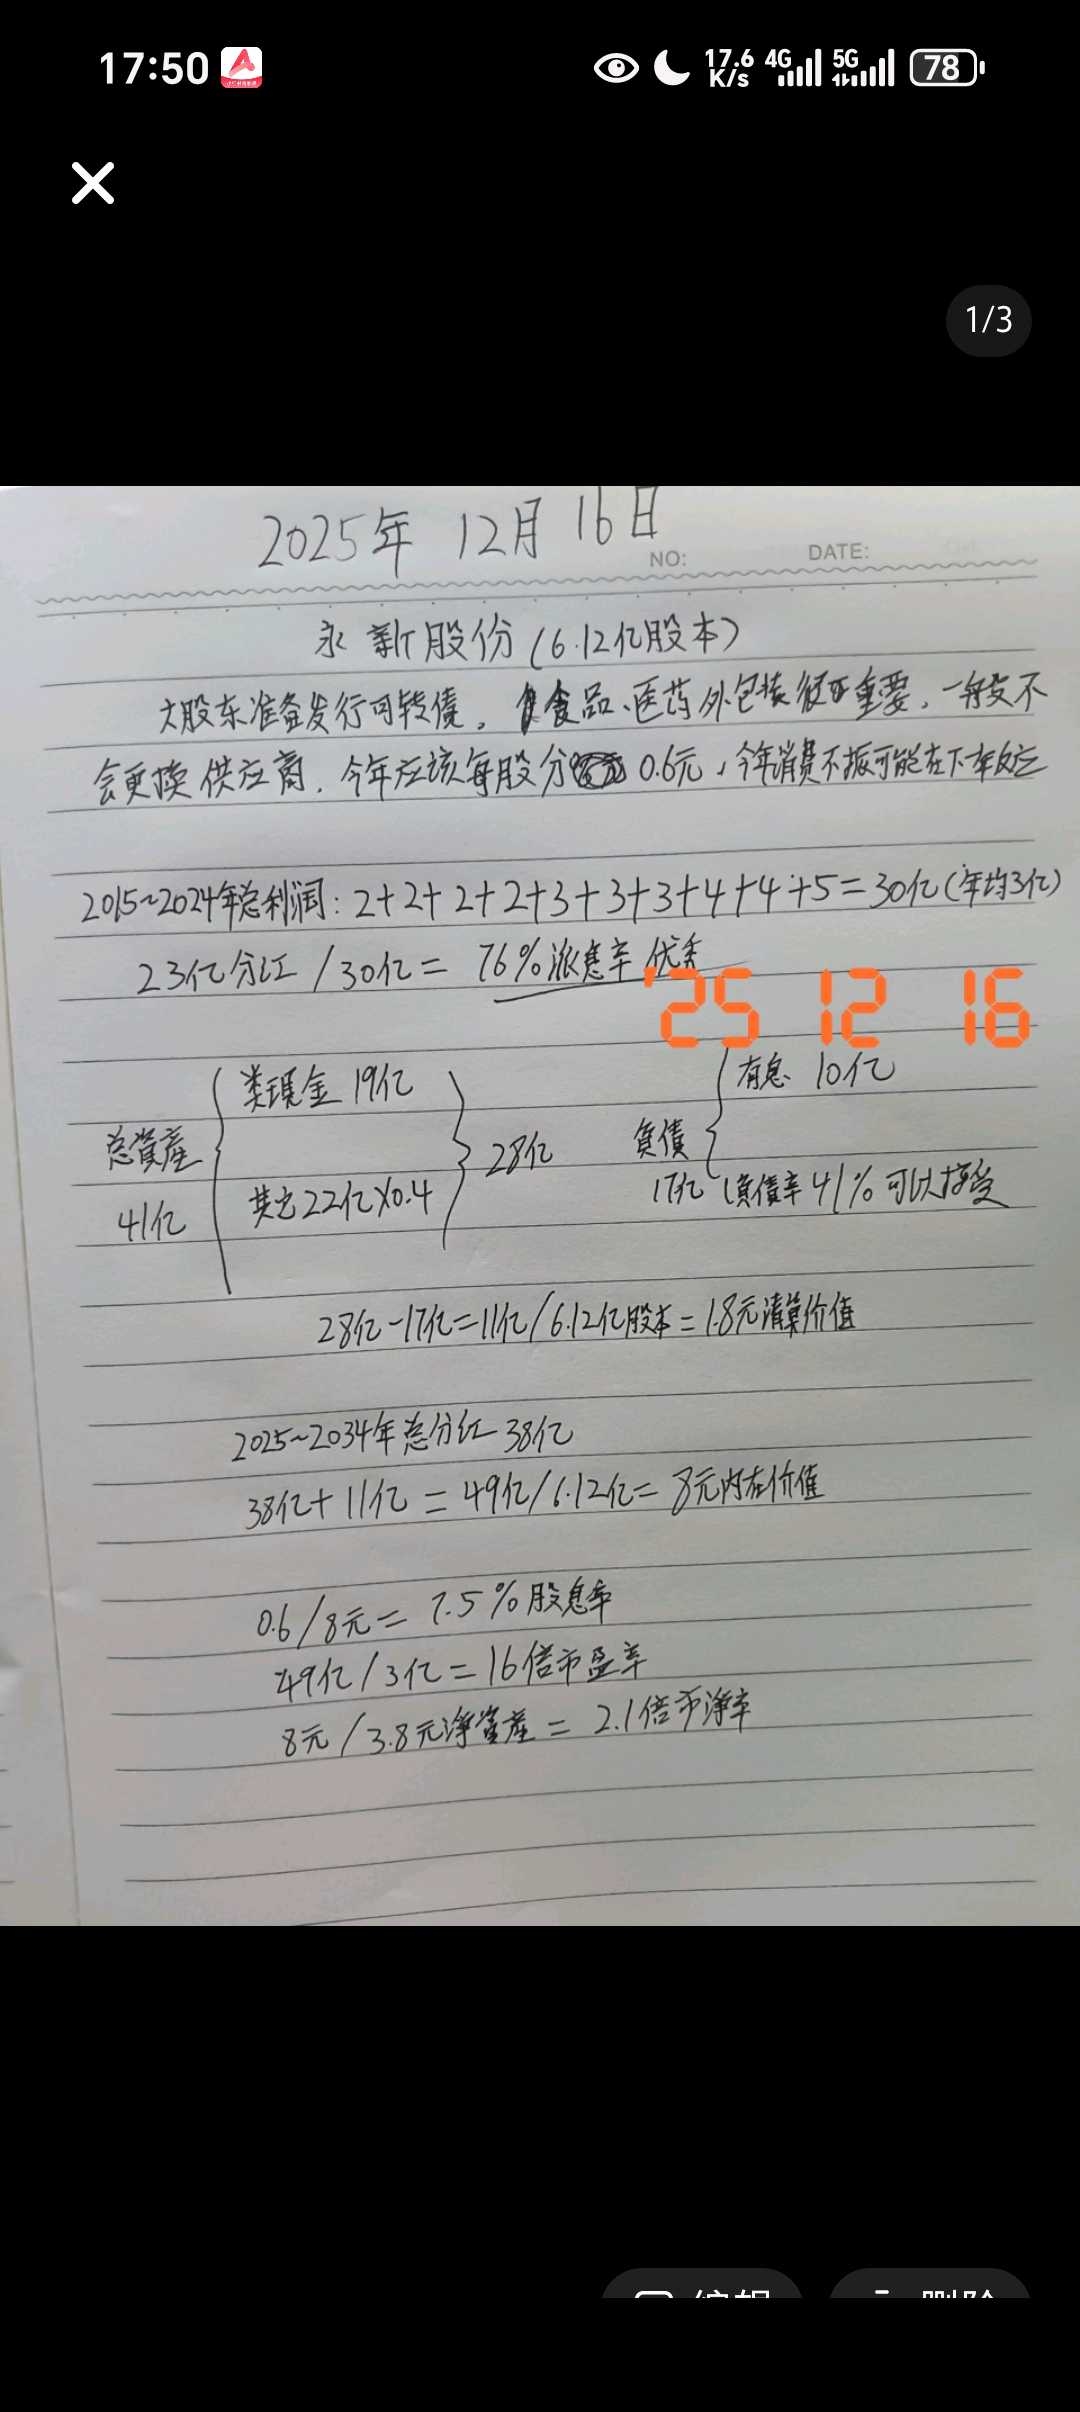 17:50
17.6 K/s 4G 5G 78
1/3
2025年 12月 16日
NO: DATE:
永新股份(6.12亿股本)
大股东准备发行可转债。食品、医药外包装很重要,一般不
会更换供应商.今年应该每股分0.6元,今年消费不振可能在下车
2015~2024年总利润:2+2+2+2+3+3+3+4+4+5=30亿(年均3亿)
23亿分红/30亿=76%派息率 优秀
'25 12 16
类现金 19亿
有息 10亿
总資產
28亿
負債
其它22亿X0.4
41亿
17亿
負债率41%可以接受
28亿-17亿=11亿/6.12亿股本=1.8元清算价值
2025~2034年总分红38亿
38亿+11亿=49亿/6.12亿=8元内在价值
0.6/8元=7.5%股息率
49亿/3亿=16倍市盈率
8元/3.8元淨資產=2.1倍市淨率
编辑
删除